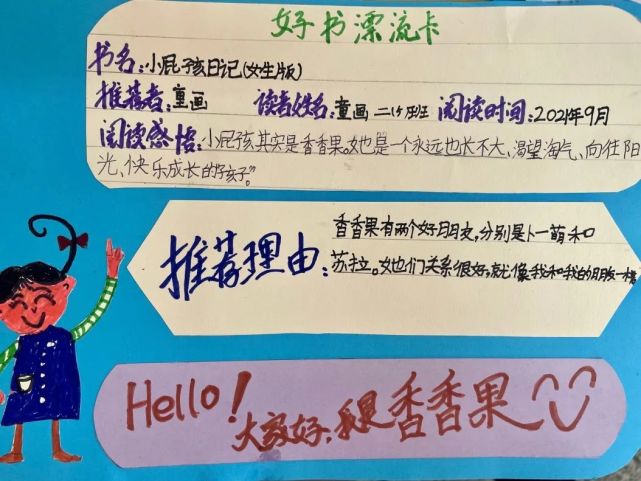 好书漂流卡
书名:小屁孩日记(女生版)
推荐者:童画 读者姓名:童画 二15班 阅读时间:2021年9月
阅读感悟:小屁孩其实是香香果。她也是一个永远也长不大、渴望淘气、向往阳
光、快乐成长的“好孩子”。
推荐理由:
香香果有两个好朋友,分别是卜一萌和
苏拉。她们关系很好,就像我和我的朋友一样
Hello!
大家好,我是香香果